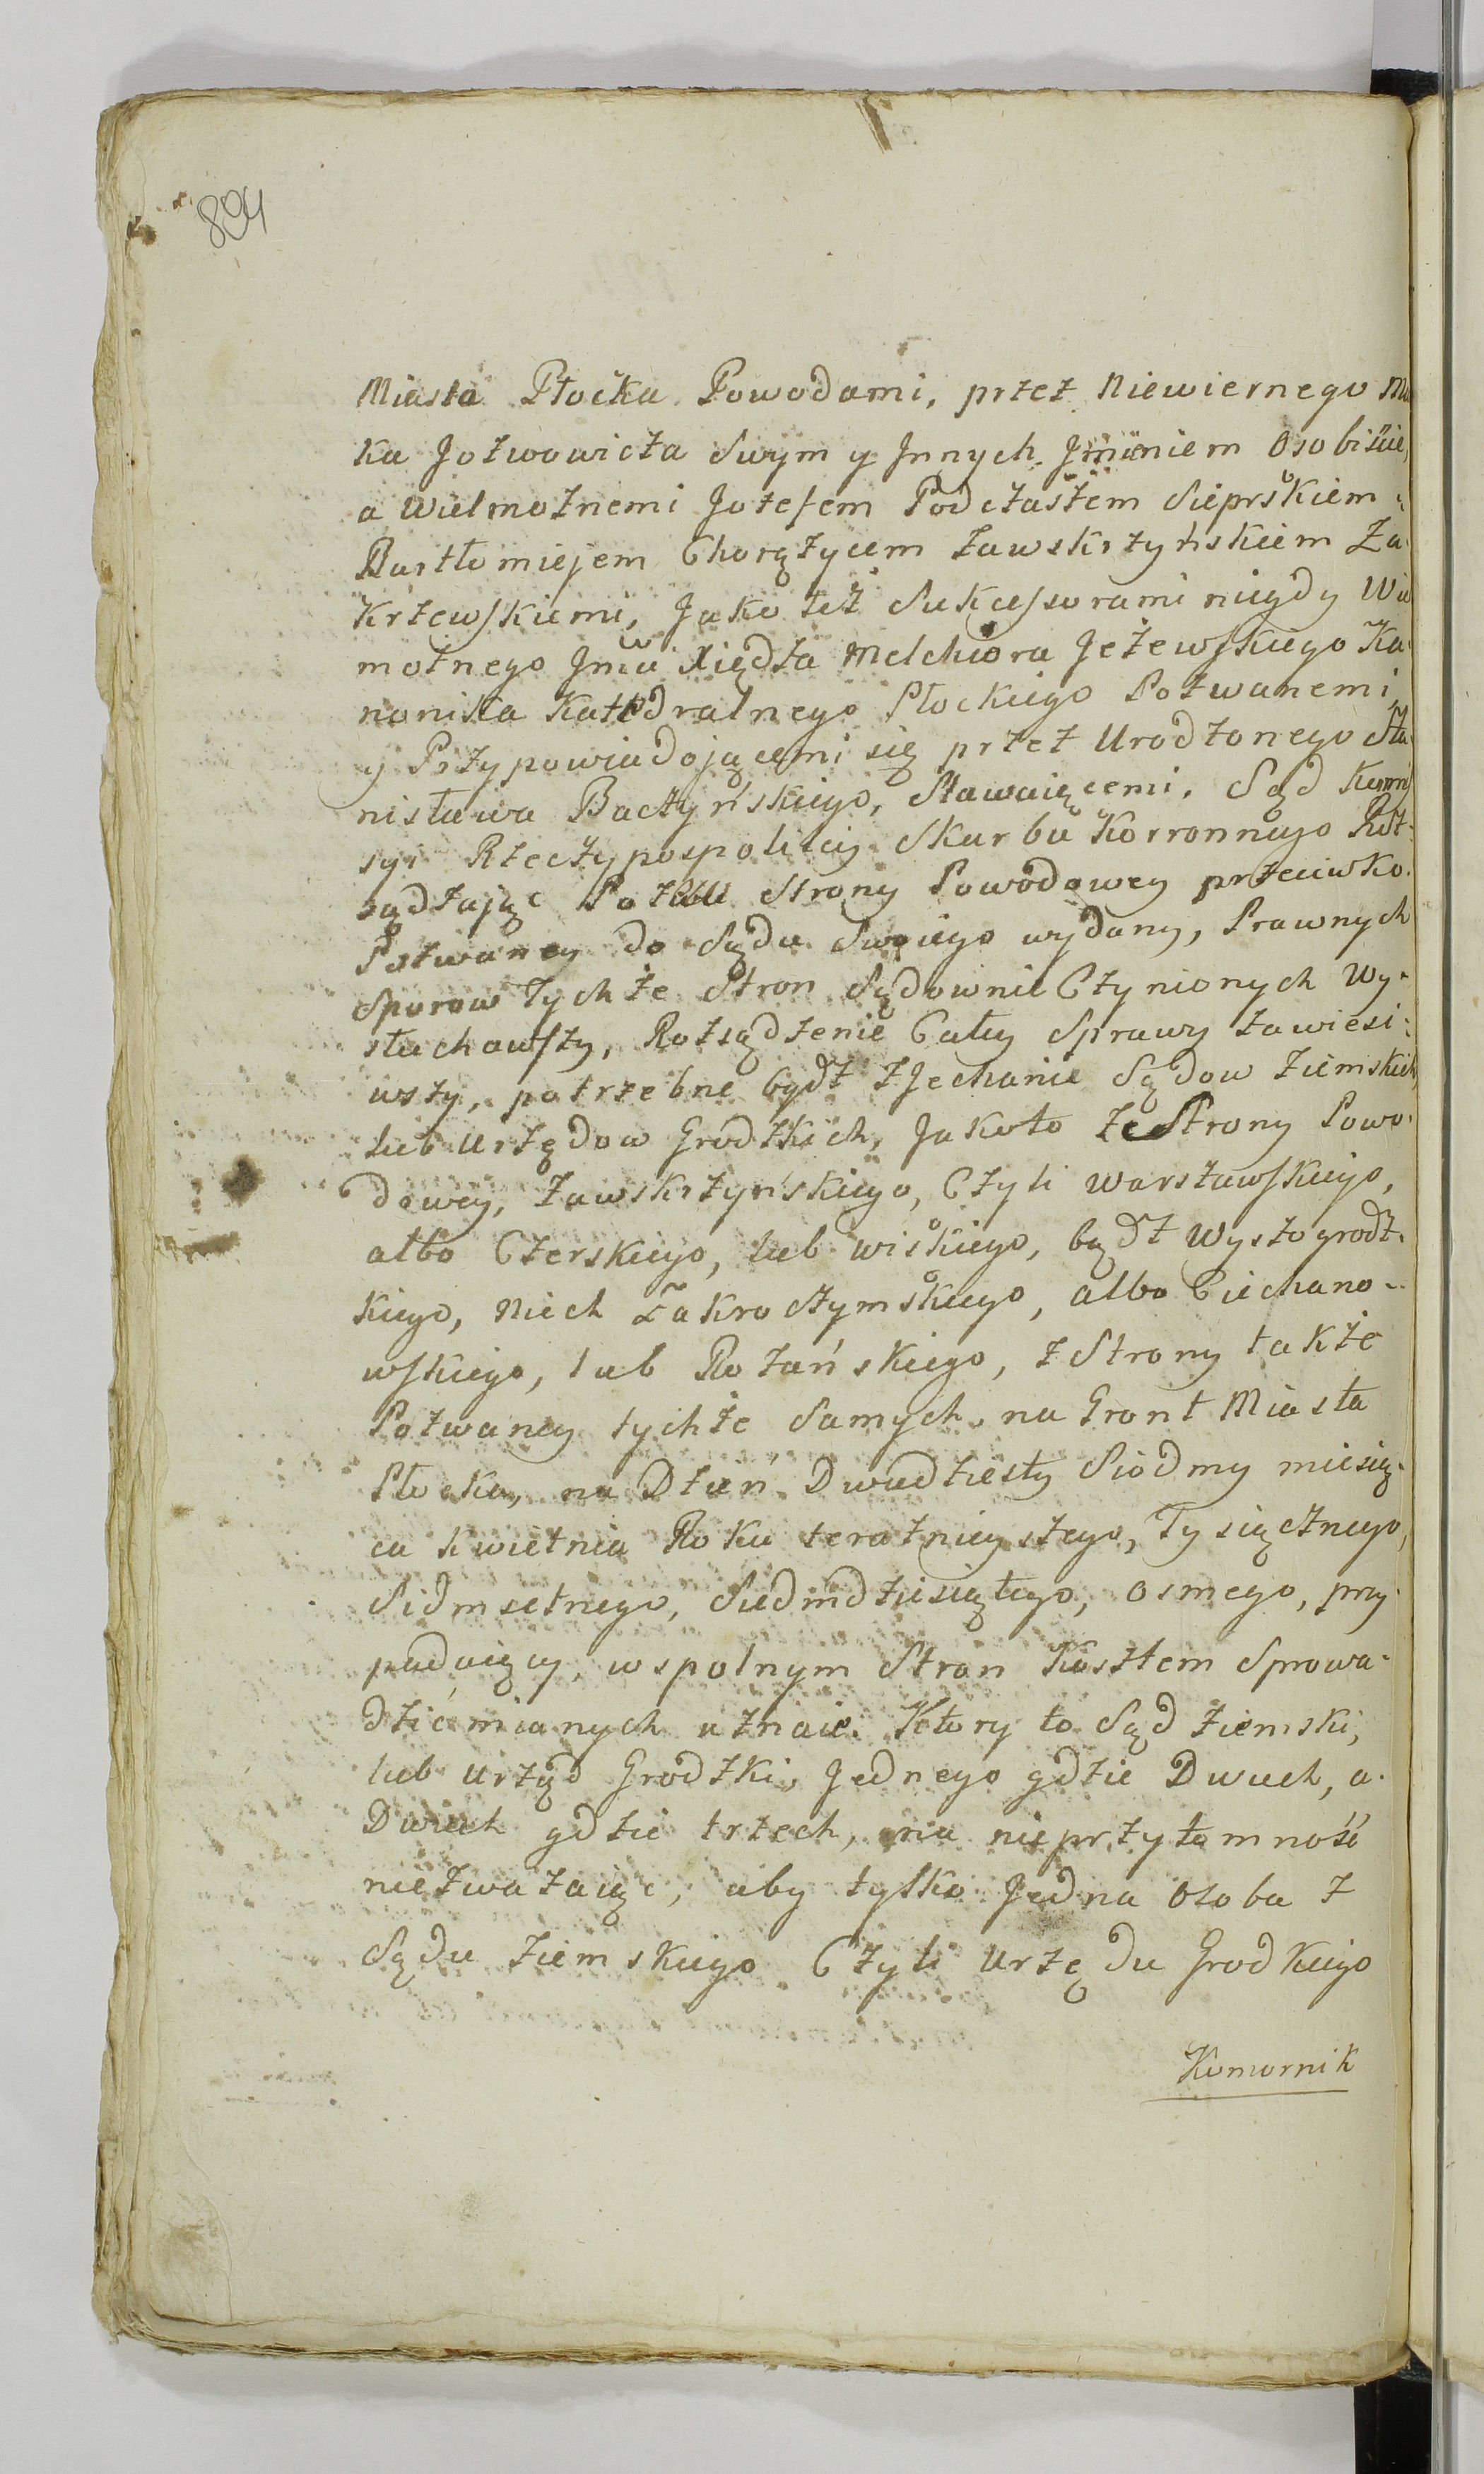 894
Miasta Płocka Powodami, przez Niewiernego
ka Jozwowicza Swym y Innych Imieniem Osobiście,
a Wielmożnemi Jozefem Podczaszem Sieprskiem
Bartłomiejem Chorążycem Zawskrzyńskiem Za-
krzewskiemi, Jako też Sukcessorami niegdy Wie
możnego Jmci Xiędza Melchiora Jeżewskiego Ka-
nonika Katedralnego Płockiego Pozwanemi,
y Przypowiadającemi się przez Urodzonego Sta-
nisława Baczyńskiego, Stawaiącemi. Sąd Kommi
syi Rzeczypospolitey Skarbu Korronnego Roz-
sądzając Pozew Strony Powodowey przeciwko
Pozwaney do Sądu Swoiego wydany, Prawnych
Sporow Tychże Stron Sądownie Czynionych Wy-
słuchawszy, Rozsądzenie Całey Sprawy zawiesi-
wszy, potrzebne bydź Zjechanie Sądow Ziemskich,
lub Urzędow Grodzkich, Jakoto ze Strony Powo-
dowey, Zawskrzyńskiego, Czyli Warszawskiego,
albo Czerskiego, lub wiskiego, bądź Wyszogrodz-
kiego, niech Zakroczymskiego, albo Ciechano-
wskiego, lub Rożańskiego, z Strony także
Pozwaney tychże Samych, na Gront Miasta
Płocka, na Dzień Dwudziesty Siodmy miesią-
ca Kwietnia Roku teraznieyszego, Tysiącznego,
Sidmsetnego, Siedmdziesiątego, osmego, przy-
padaiący, wspolnym Stron Kosztem Sprowa-
dzić mianych uznaie. Ktory to Sąd Ziemski,
lub Urząd Grodzki, Jednego gdzie Dwuch, a
Dwuch gdzie trzech, na nieprzytomność
niezważaiąc, aby tylko Jedna Osoba z
Sądu Ziemskiego Czyli Urzędu Grodkiego
Komornik